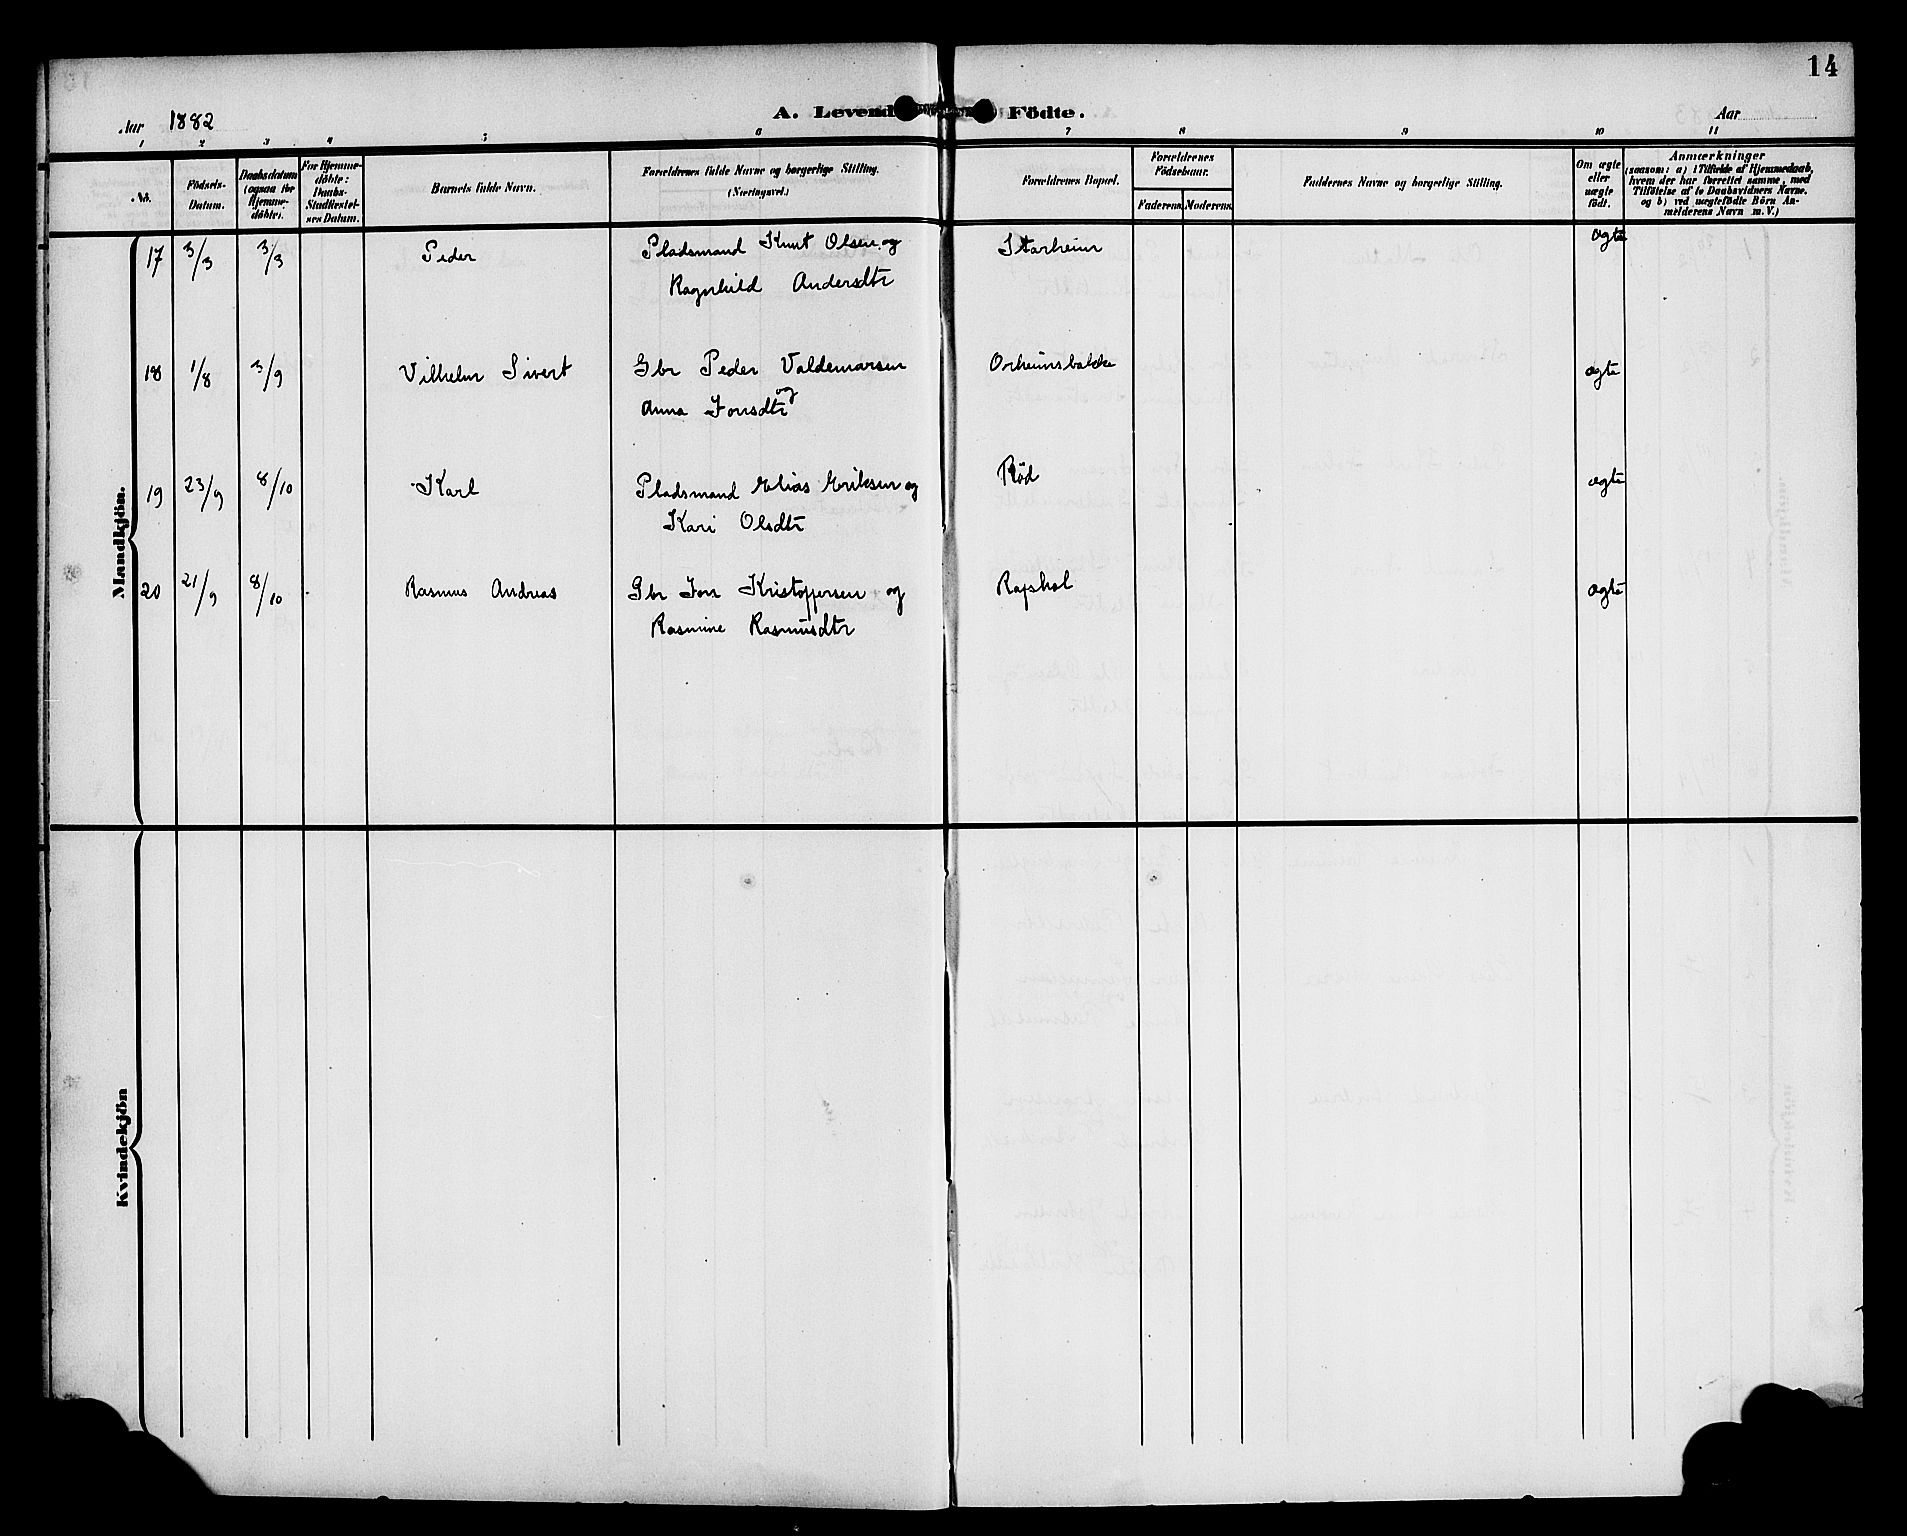 14
A. Levende Födte.
Aar 1882
Aar
1 2 3 4 5 6 7 8 9 10 11
No.
Födsels-Datum.
Daabsdatum (ogsaa for Hjemme-döbte).
For Hjemme-döbte: Daabs-Stadfæstel-ses Datum.
Barnets fulde Navn.
Forældrenes fulde Navne og borgerlige Stilling. (Næringsvei.)
Forældrenes Bopæl.
Forældrenes Födselsaar.
Faderens Moderens
Faddernes Navne og borgerlige Stilling.
Om ægte eller uægte födt.
Anmærkninger
(saasom: a) i Tilfælde af Hjemmedaab, hvem der har forrettet samme, med Tilföielse af to Daabsvidners Navne. og b) ved uægtefödte Börn An-melderens Navn m. V.)
Mandkjön.
17 3/3 3/3 Peder Pladsmand Knut Olsen og Starheim ægte
Ragnhild Andersdtr
18 1/8 3/9 Vilhelm Sivert Gbr Peder Valdemarsen Orheimsbakke ægte
og
Anna Jonsdtr
19 23/9 8/10 Karl Pladsmand Elias Eriksen og Rød ægte
Kari Olsdtr
20 21/9 8/10 Rasmus Andreas Gbr Jon Kristoffersen og ægte
Rasmine Rasmusdtr
Kvindekjön